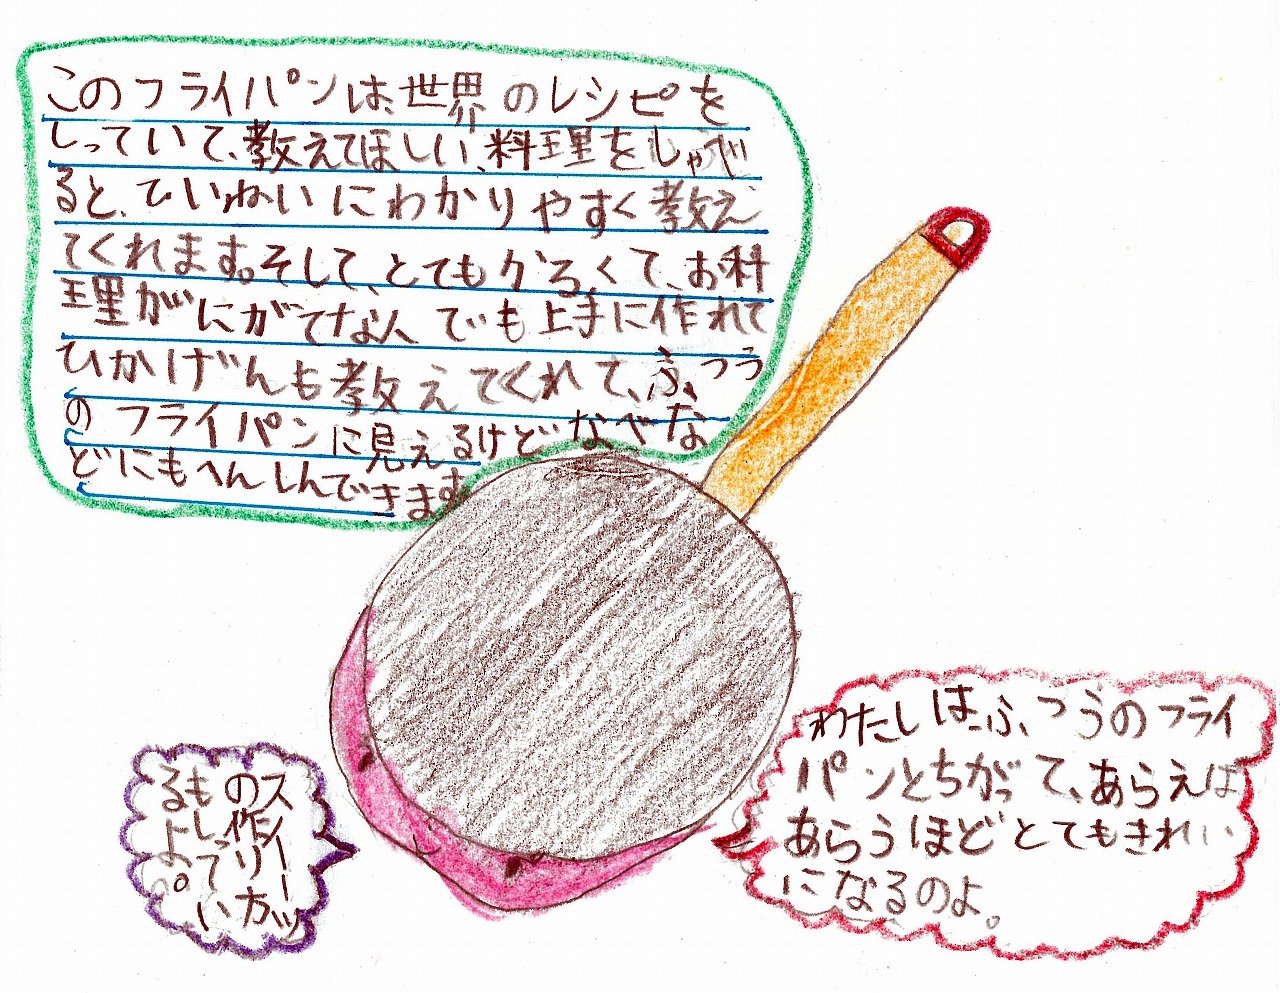 このフライパンは、世界のレシピを
しっていて、教えてほしい、料理をしゃべ
ると、ていねいにわかりやすく教え
てくれます。そして、とてもかるくて、お料
理がにがてな人でも上手に作れて
ひかげんも教えてくれて、ふつう
のフライパンに見えるけどなべな
どにもへんしんできます
わたしはふつうのフライ
パンとちがって、あらえば
あらうほどとてもきれい
になるのよ。
スイーツ
の作り方
もしってい
るよ。